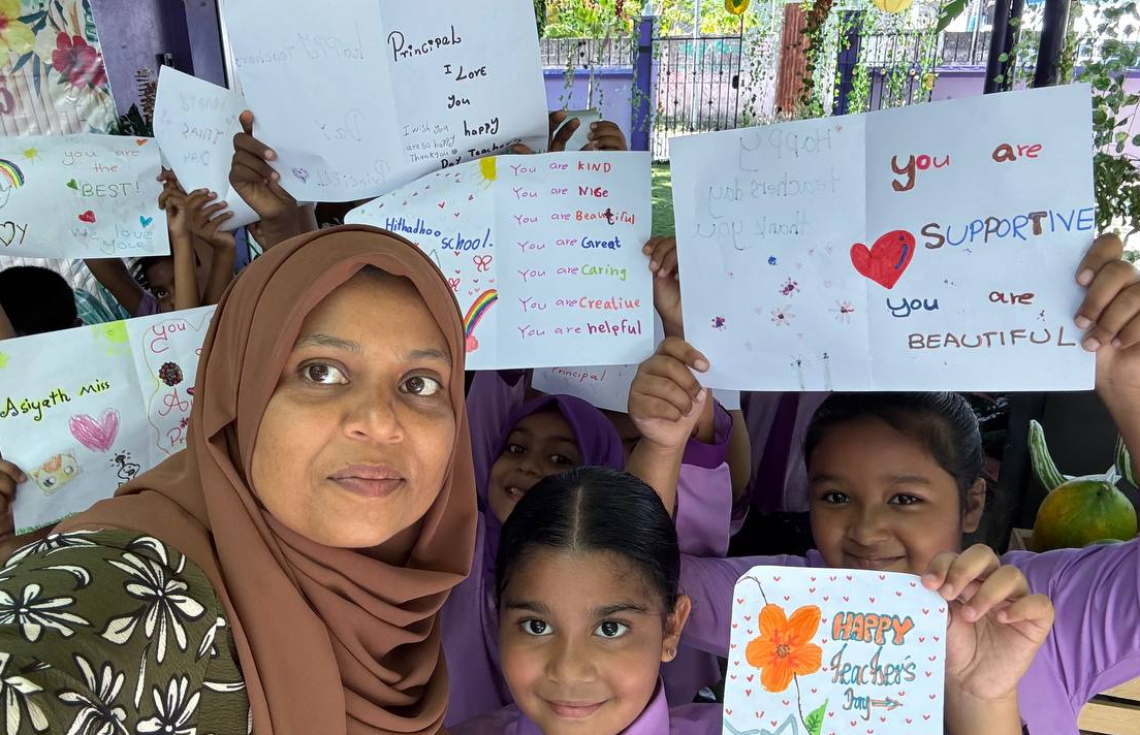 Principal
I Love
you
happy
Day Teachers
I wish you
are so happy
Thank you
you are
the
BEST!
We love
you
Hithadhoo
school.
You are KIND
You are NICe
You are Beautiful
You are Great
You are Caring
You are Creative
You are helpful
Happy
teachers day
thank you
you are
SUPPORTIVE
you are
BEAUTIFUL
Asiyath miss
You
Principal
HAPPY
Teacher's
Day